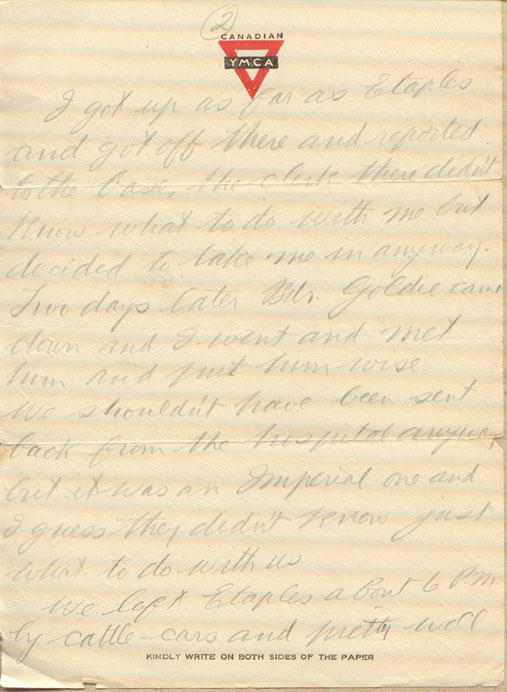 (2)
CANADIAN
YMCA
I got up as far as Etaples
and got off there and reported
to the base, the clerk there didn't
know what to do with me but
decided to take me in anyway.
Two days later Bdr. Goldie came
down and I went and met
him and put him wise.
We shouldn't have been sent
back from the hospital anyway
but it was an Imperial one and
I guess they didn't know just
what to do with us.
We left Etaples about 6 P.M.
by cattle-cars and pretty well
KINDLY WRITE ON BOTH SIDES OF THE PAPER